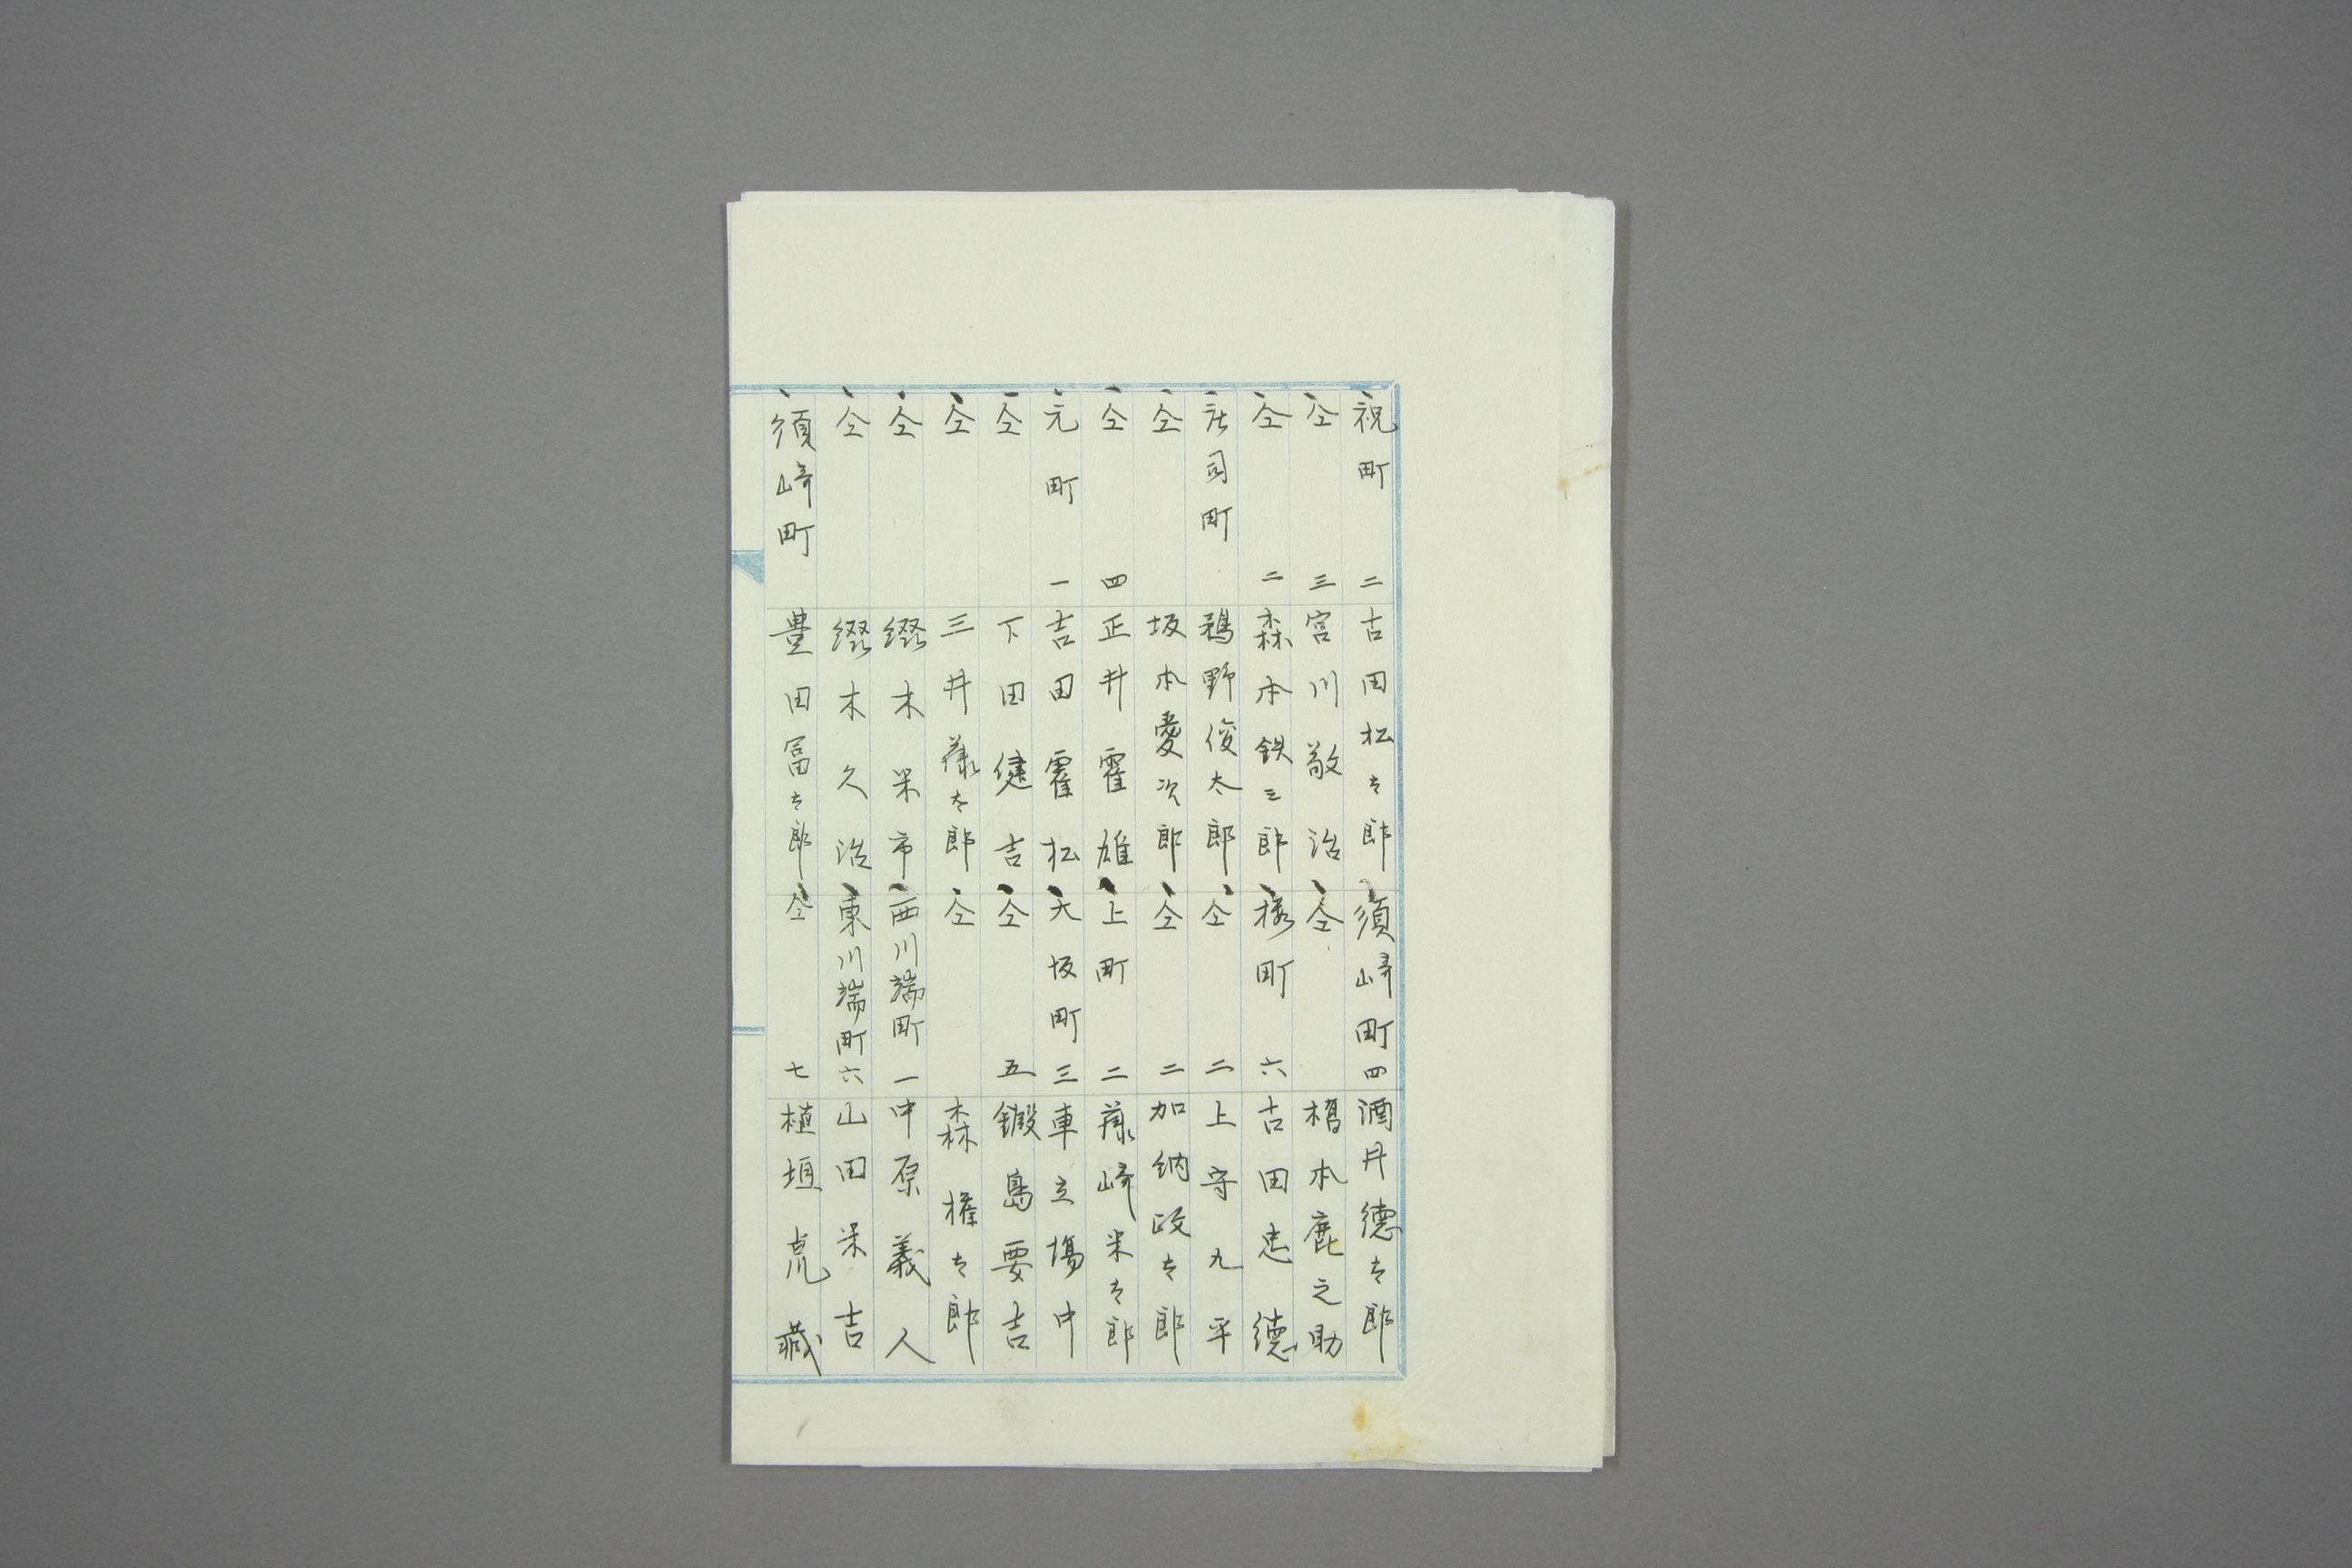 祝町 二 古田松太郎
仝 三 宮川敬治
仝 二 森本鉄三郎
庄司町 鵜野俊太郎
仝 坂本愛次郎
仝 四 正井霍雄
元町 一 吉田霍松
仝 下田健吉
仝 三井藤太郎
仝 綴木米市
仝 綴木久治
須崎町 豊田冨太郎
須崎町 四 酒井德太郎
仝 榗本鹿之助
桜町 六 古田忠德
仝 二 上守九平
仝 二 加納政太郎
上町 二 藤崎米太郎
大坂町 三 車立場中
仝 五 鍜島要吉
仝 森権太郎
西川端町 一 中原義人
東川端町 六 山田米吉
仝 七 植垣虎藏